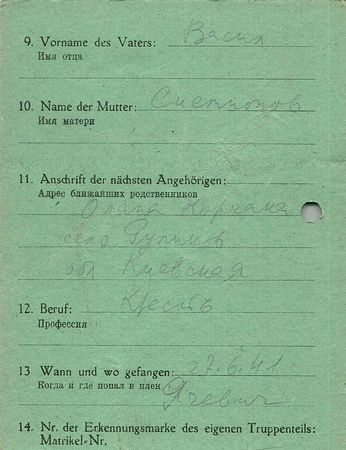 9. Vorname des Vaters: Васил
Имя отца
10. Name der Mutter:
Имя матери
11. Anschrift der nächsten Angehörigen:
Адрес ближайших родственников
село
обл Киевская
12. Beruf: Кресть
Профессия
13 Wann und wo gefangen: 27.6.41
Когда и где попал в плен
14. Nr. der Erkennungsmarke des eigenen Truppenteils:
Matrikel-Nr.